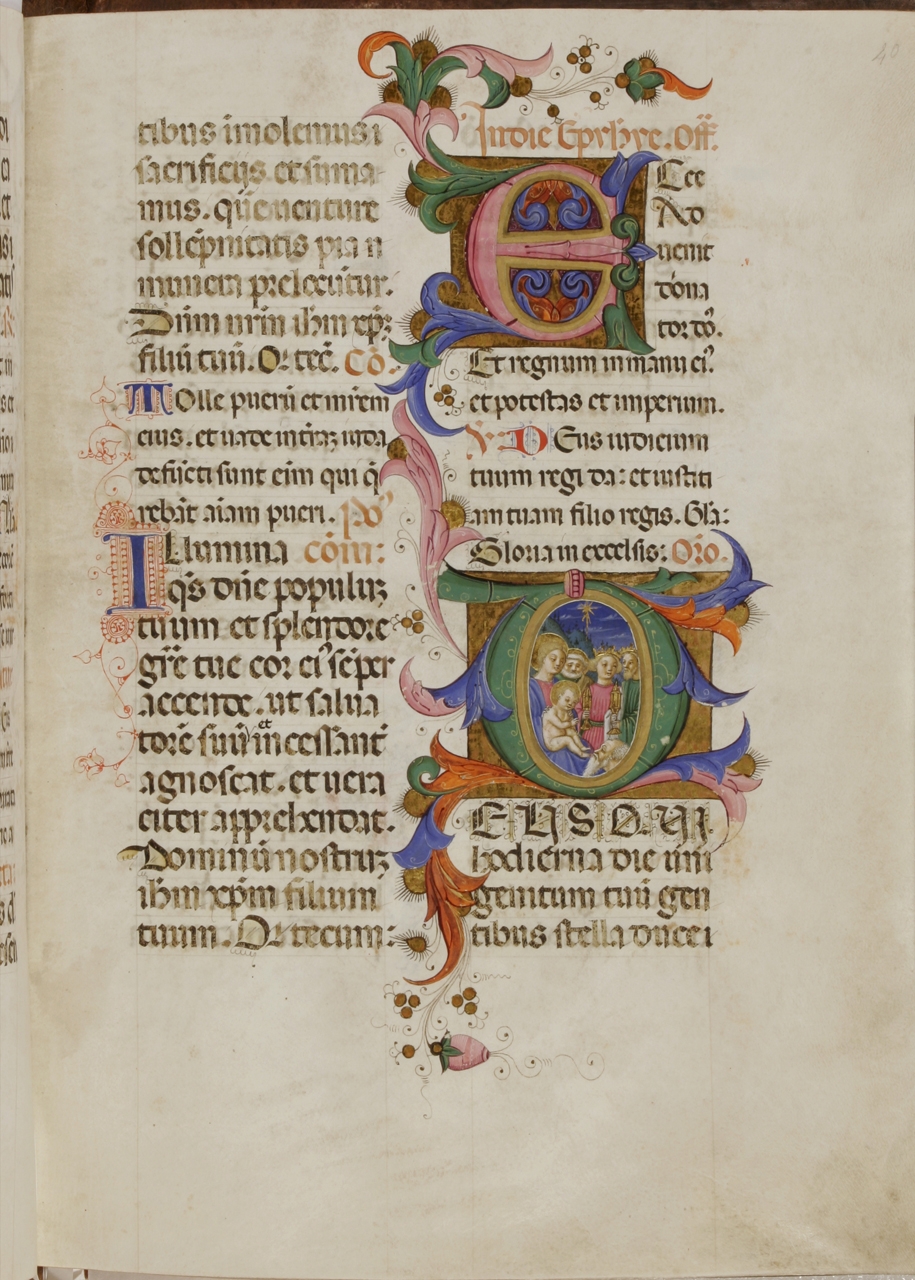 tibus īmolemus i
sacrificiis et suma
mus. quē venture
sollēpnitatis pia n
munera prelocūtur.
Dūm nr̄m ihm xp̄z
filiū tuū. Q⁊ tec̄. Cō.
Tolle puerū et mr̄em
eius. et vade in trāz iuda
defūcti sunt eīm qui q̄
rebāt aīam pueri. Po
Illumina com̄:
q̄s dn̄e populuz
tuum et splendore
gr̄e tue cor ei⁹ sēper
accende. ut salva
torē suū et incessant̄
agnoscat. et vera
citer apprehendat.
Dominū nostruz
ihm xp̄m filium
tuum. Q⁊ tecum:
In die Epyhye. Off̄.
Ecce
Ad
venit
dōna
tor do.
Et regnum in manu ei⁹.
et potestas et imperium.
V. Deus iudicium
tuum regi da: et iusti ti
am tuam filio regis. Gła:
Gloria in excelsis: Orō.
DEUS QUI
hodierna die uni
genitum tuū gen
tibus stella duce i
40